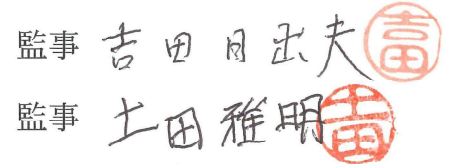 監事 吉田日出夫 吉田
監事 土田雅明 土田